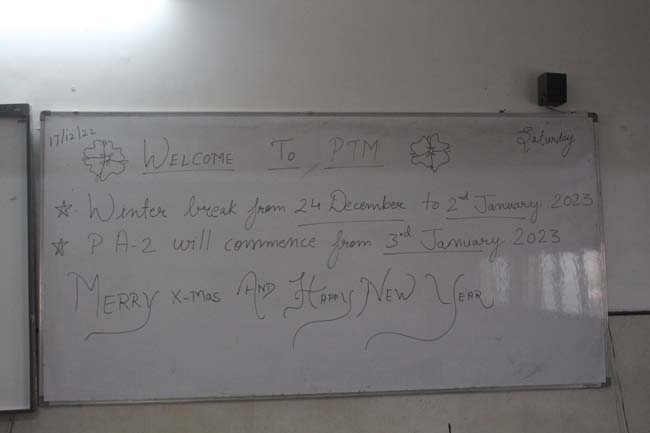 17/12/22
Saturday
WELCOME TO PTM
☆ Winter break from 24 December to 2nd January 2023
☆ PA-2 will commence from 3rd January 2023
MERRY X-MAS AND HAPPY NEW YEAR